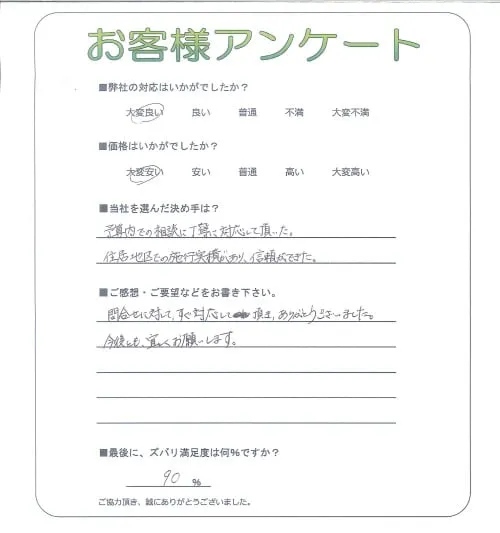 お客様アンケート
■弊社の対応はいかがでしたか？
大変良い 良い 普通 不満 大変不満
■価格はいかがでしたか？
大変安い 安い 普通 高い 大変高い
■当社を選んだ決め手は？
予算内での相談に丁寧に対応して頂いた。
住居地区での施行実績があり、信頼ができた。
■ご感想・ご要望などをお書き下さい。
問合せに対して、すぐ対応して頂き、ありがとうございました。
今後とも、宜しくお願いします。
■最後に、ズバリ満足度は何%ですか？
90 %
ご協力頂き、誠にありがとうございました。